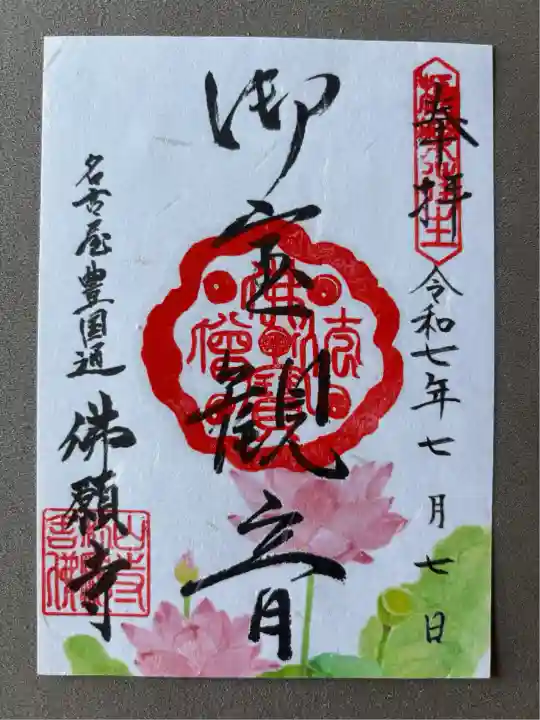 奉拝
令和七年七月七日
御宝観音
佛法僧寶
名古屋豊国通
佛願寺